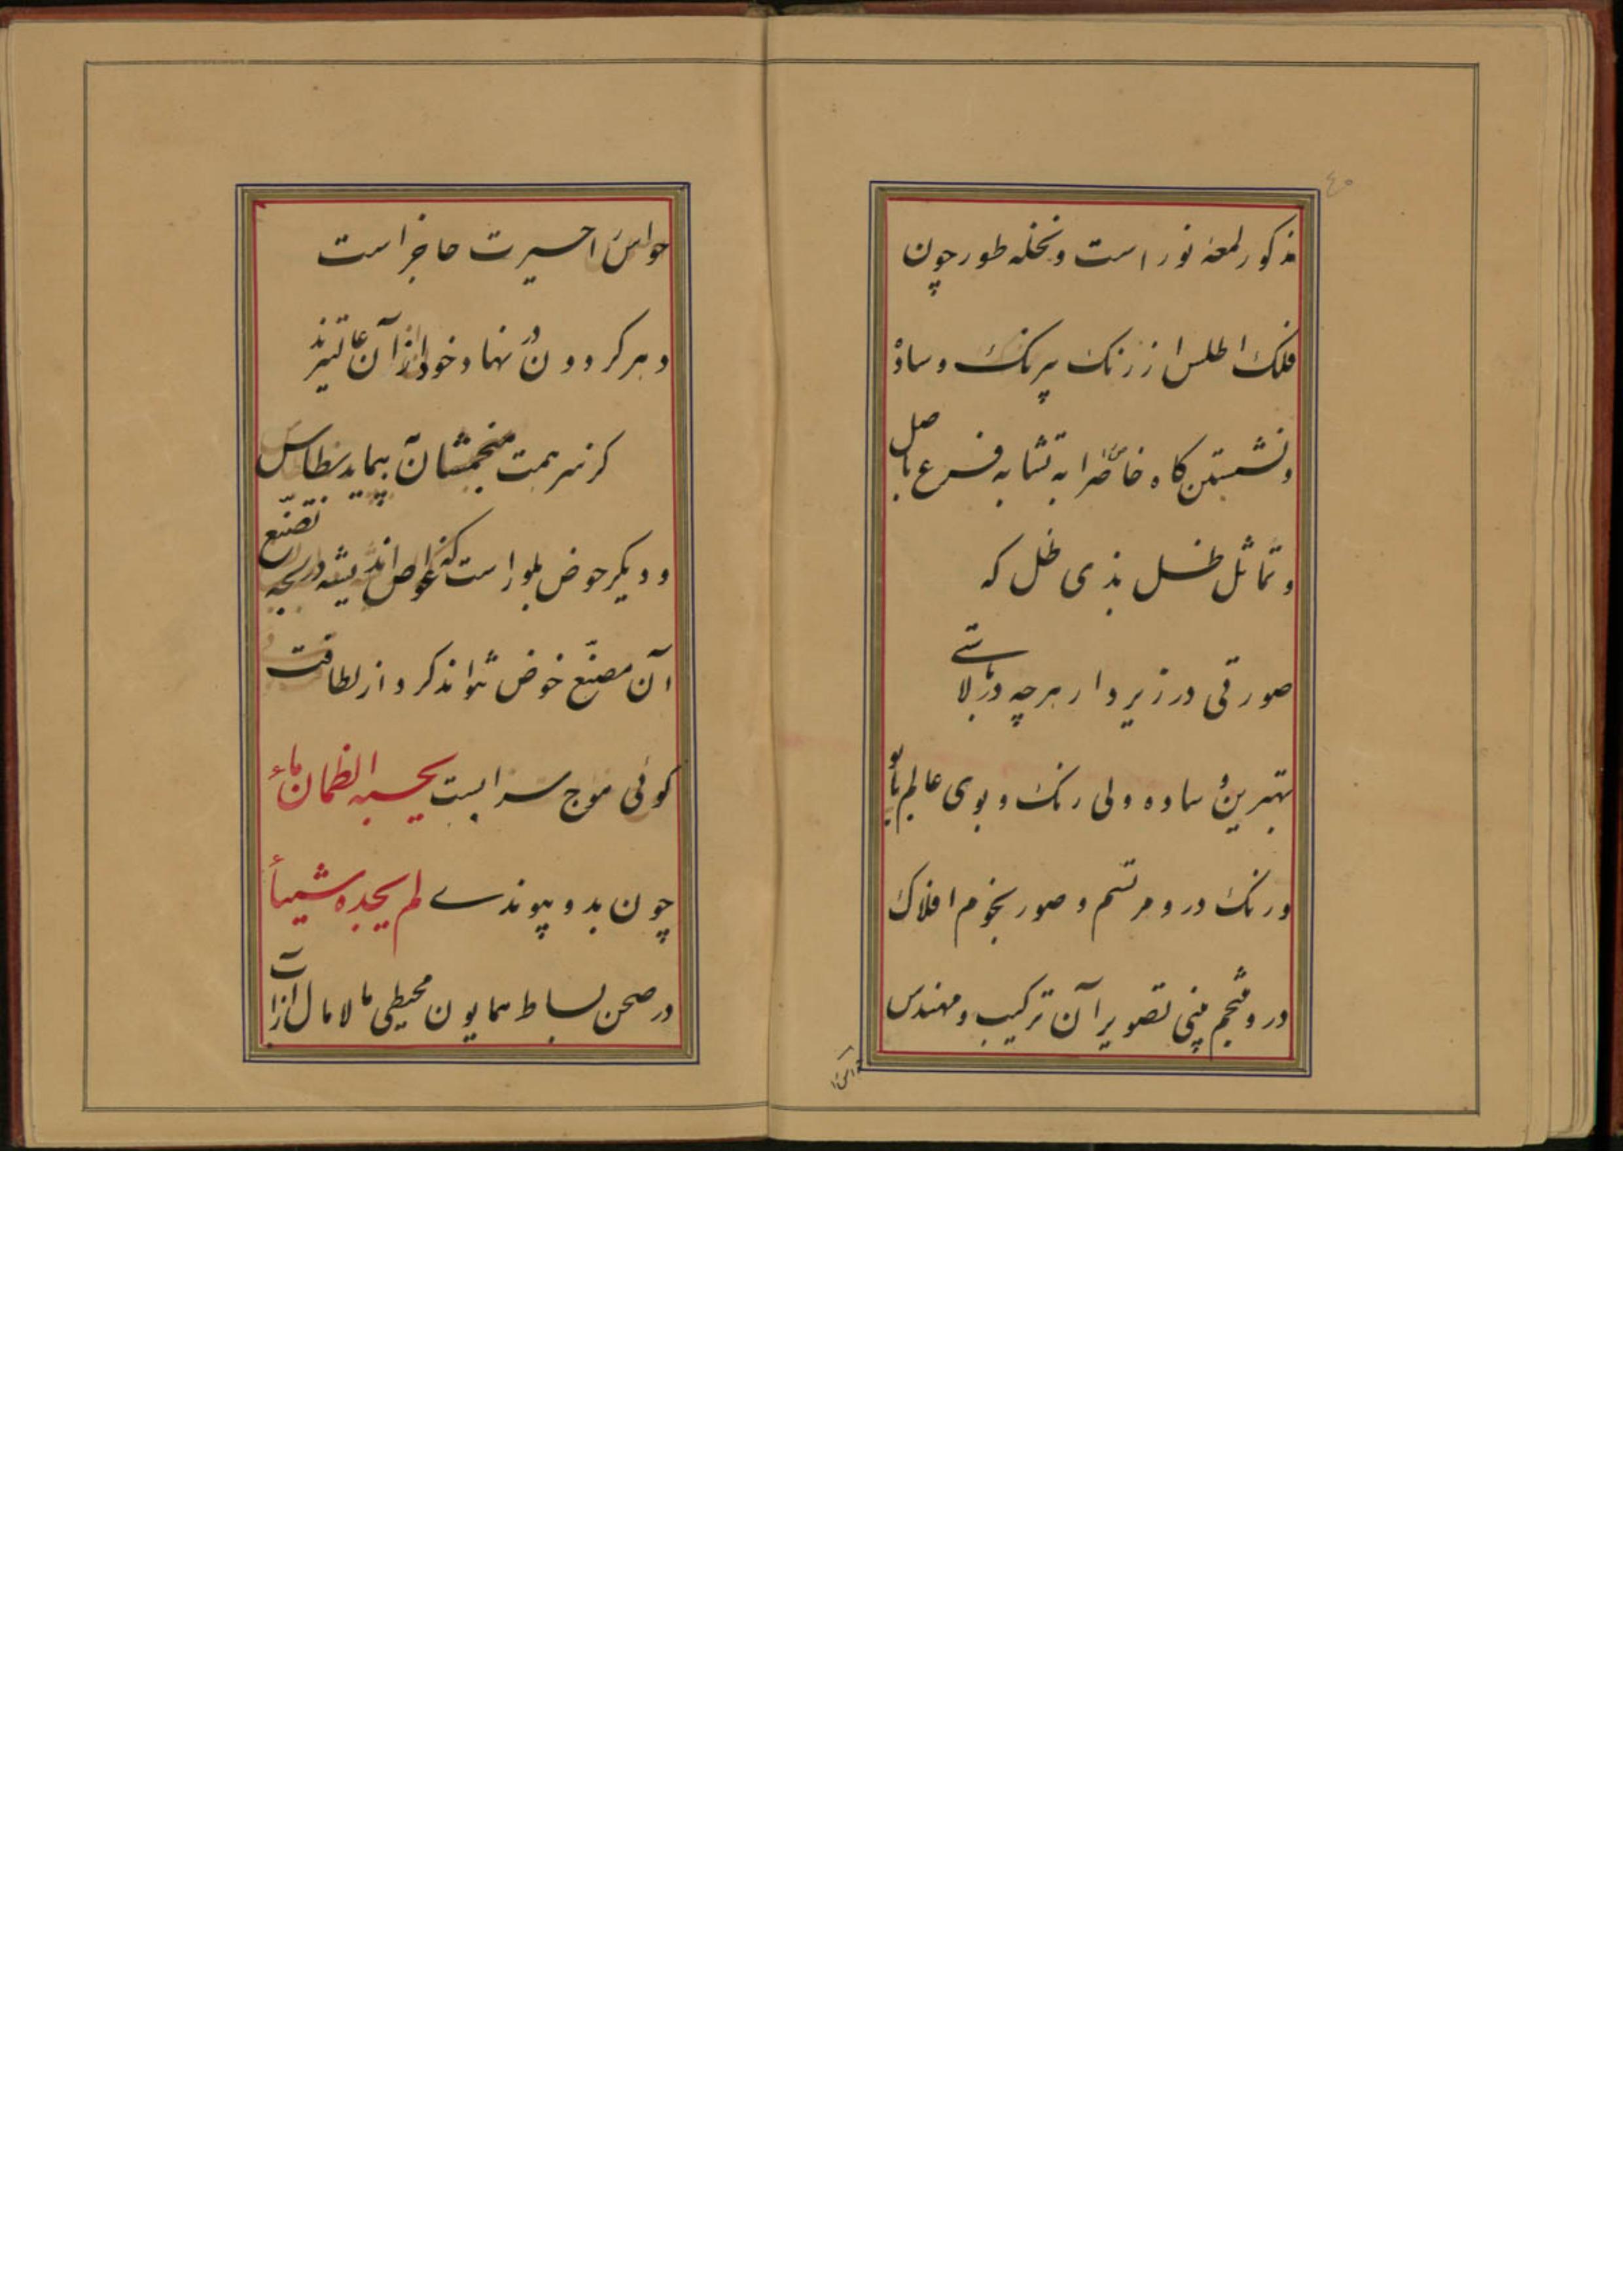 ٤٠
مذکور لمعهٔ نور است و نخله طور چون
فلک اطلس از رنک بیرنک و ساده
و نشستن کاه خاصّ را به تشابه فرع باصل
و تماثل ظل بذی ظل که
صورتی در زیر دارد هرچه در بالاستی
بهترین ساده ولی رنک و بوی عالم با او
و رنک درو مرتسم و صور نجوم افلاک
درو منجم مبنی تصویر آن ترکیب و مهندس
حواس را حسیرت حاجز است
و هر کردون نهاد خود از آن عالیترند
کر نه سر همت منجمشان بپیماید بطاس
و دیکر حوض بلور است که غواص اندیشه در لجه تصنّع
آن مصنّع خوض نتواند کرد و از لطافت
کوئی موج سرابست یحسبه الظمان ماء
چون بدو پیوندے لم یجده شیئأ
در صحن بساط همایون محیطی مالامال از آب